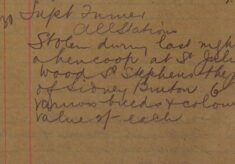 Supt Turner
All Stations
Stolen during last night
a hencoop at St Jul
Wood St Stephens the
of Sidney Burton 6
various breeds & colou
value of each